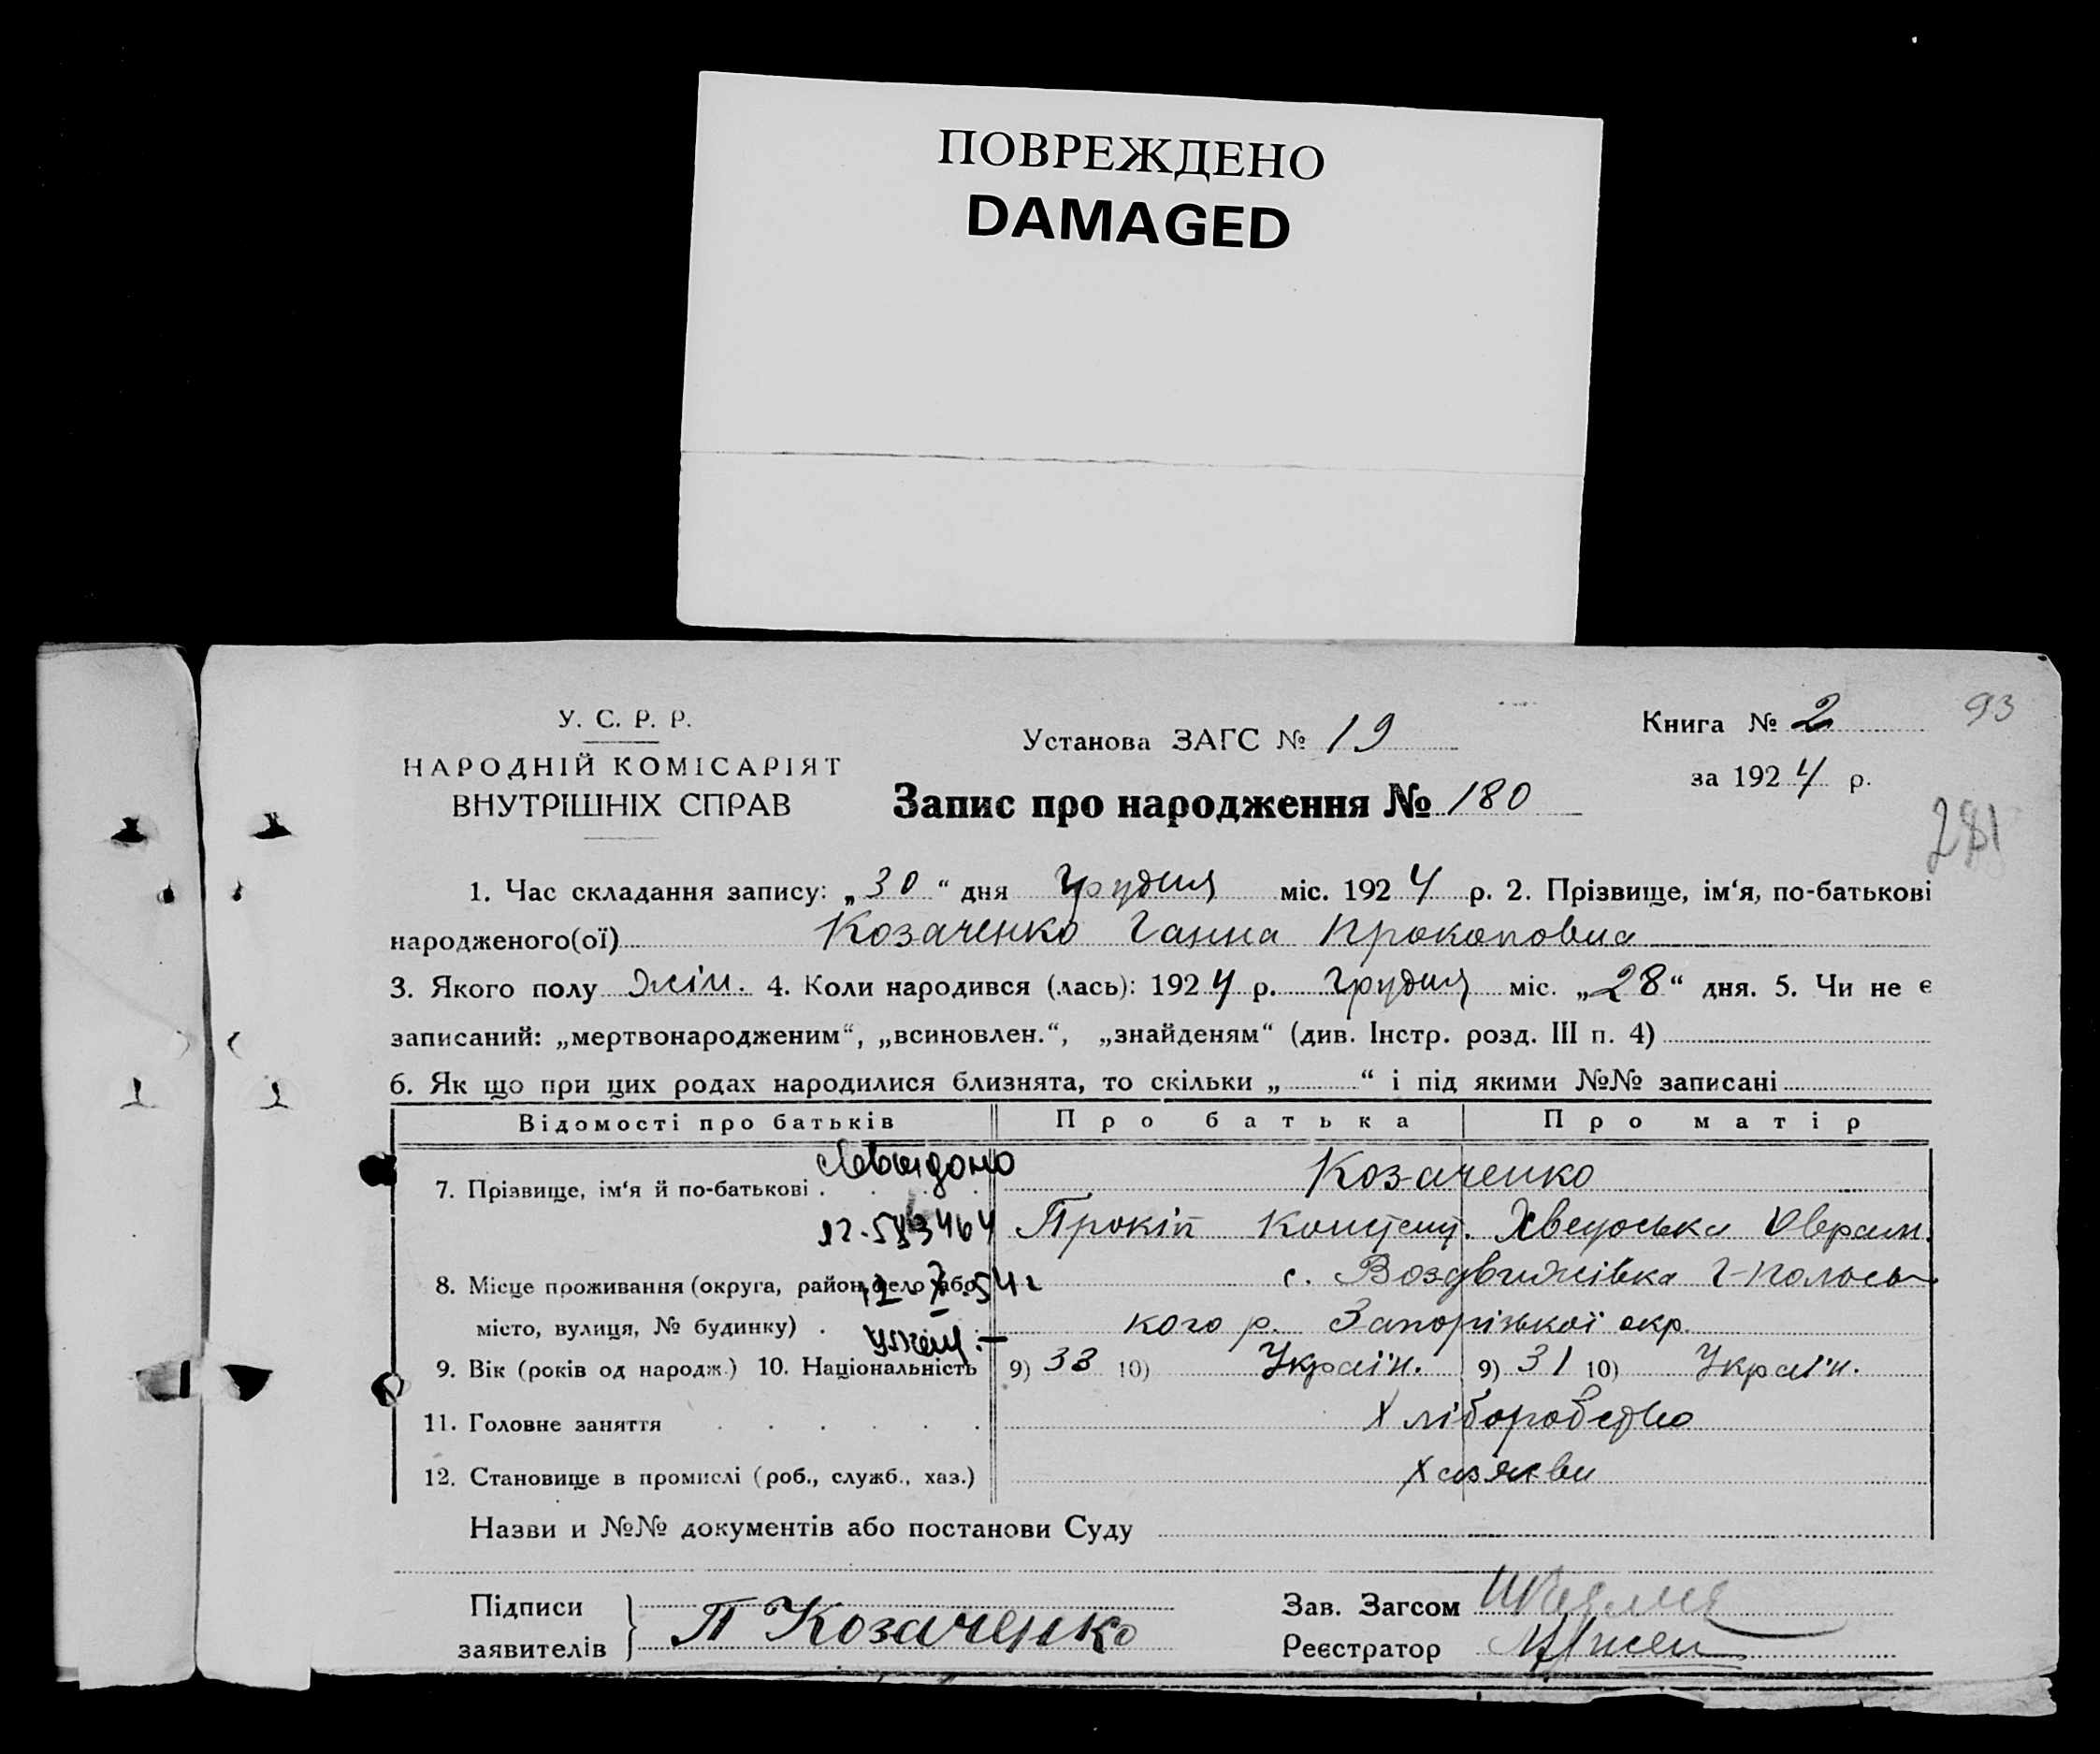 ПОВРЕЖДЕНО
DAMAGED
У. С. Р. Р.
НАРОДНІЙ КОМІСАРІЯТ
ВНУТРІШНІХ СПРАВ
Установа ЗАГС № 19
Книга № 2
93
за 1924 р.
Запис про народження № 180
281
1. Час складання запису: „30“ дня Грудня міс. 1924 р. 2. Прізвище, ім‘я, по-батькові
народженого(ої) Козаченко Ганна Прокоповна
3. Якого полу жін. 4. Коли народився (лась): 1924 р. Грудня міс. „28“ дня. 5. Чи не є
записаний: „мертвонародженим“, „всиновлен.“, „знайденям“ (див. Інстр. розд. III п. 4)
6. Як що при цих родах народилися близнята, то скільки „ “ і під якими №№ записані
Відомості про батьків Про батька Про матір
7. Прізвище, ім‘я й по-батькові Козаченко
Прокіп Констант. Хведоська Оврам.
8. Місце проживання (округа, район, село або с. Воздвижівка Г-Польсь
місто, вулиця, № будинку) кого р. Запорізької окр.
9. Вік (років од народж.) 10. Національність 9) 33 10) Україн. 9) 31 10) Україн.
11. Головне заняття Хліборобство
12. Становище в промислі (роб., служб., хаз.) Хазяєви
Назви и №№ документів або постанови Суду
Підписи
заявителів П Козаченко
Зав. Загсом
Реєстратор